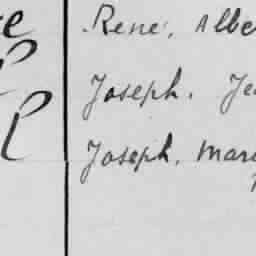 René, Albe
Joseph, Je
Joseph, Mar